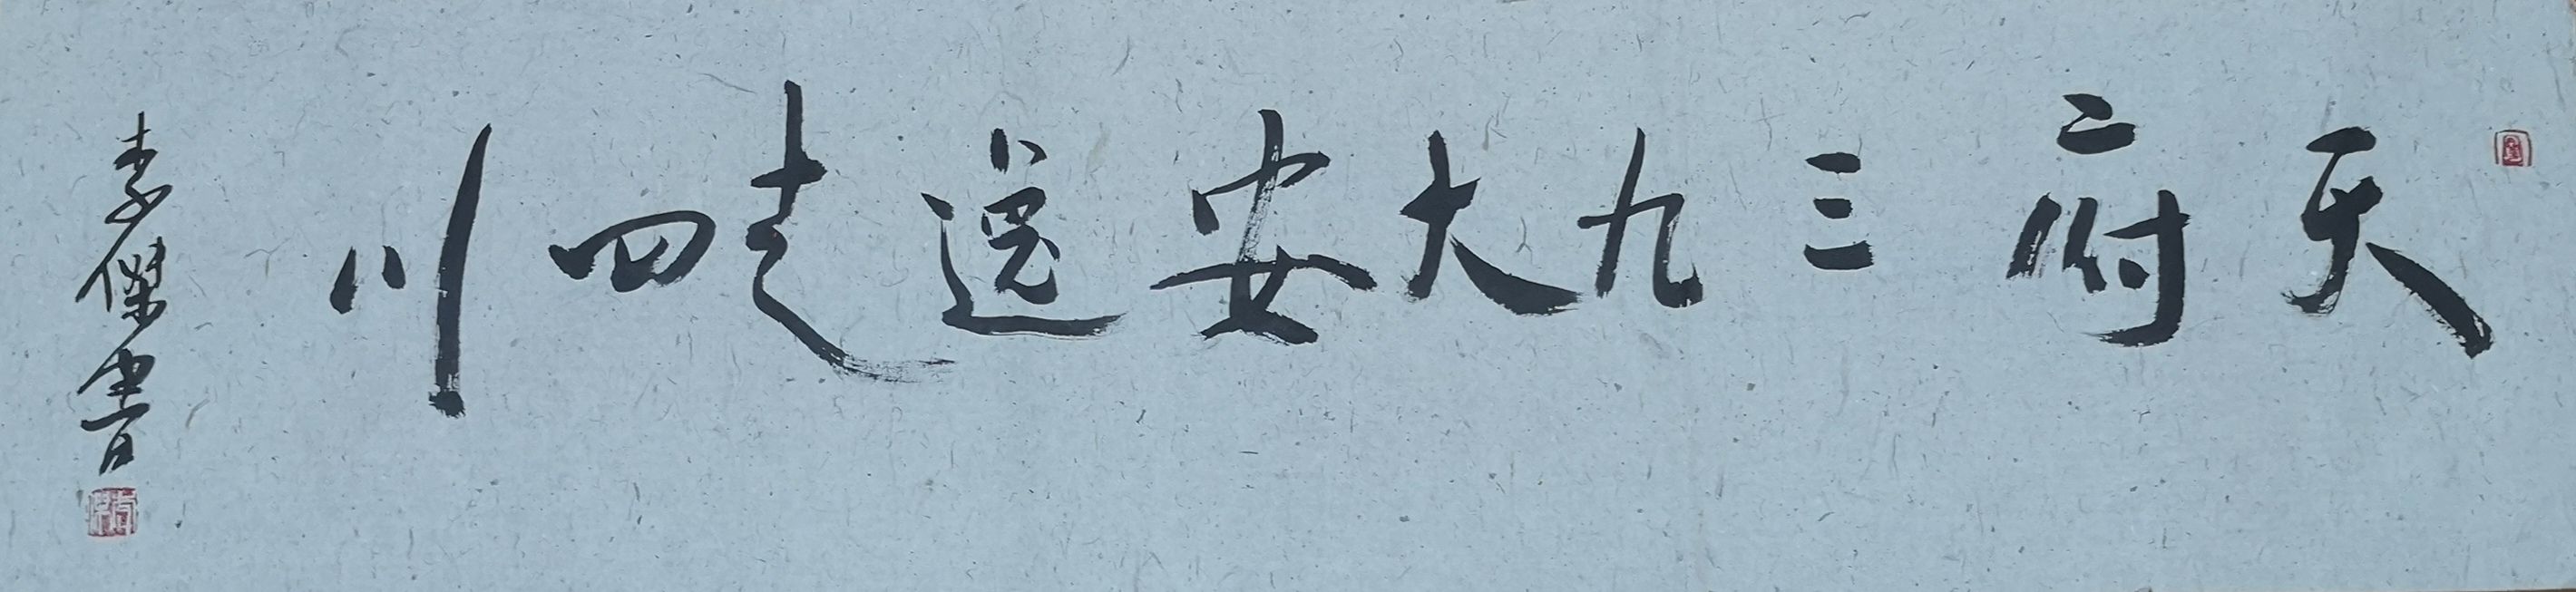 天府三九大安逸走四川
李傑書